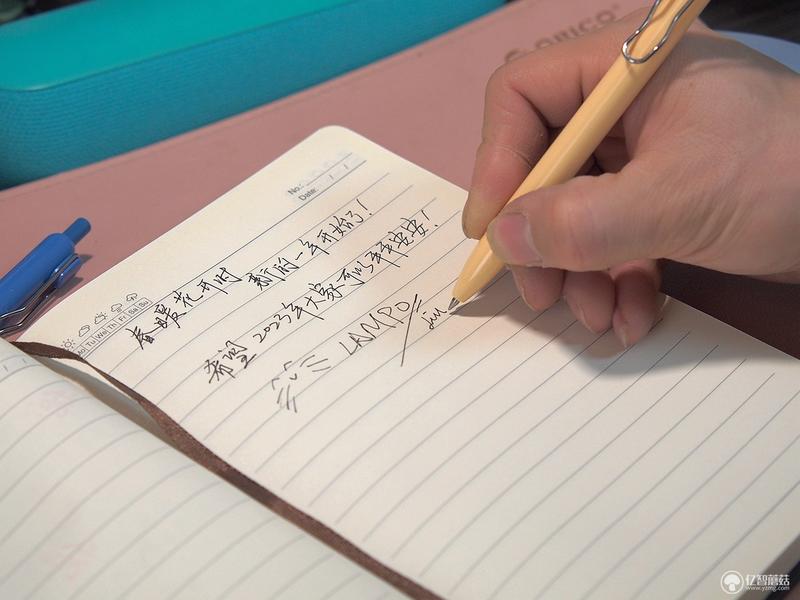 ORICO
No.
Date: / /
Mo Tu We Th Fr Sa Su
春暖花开时 新的一年开始了!
希望 2023年大家可以平平安安!
LAMPO
亿智蘑菇
www.yzmg.com